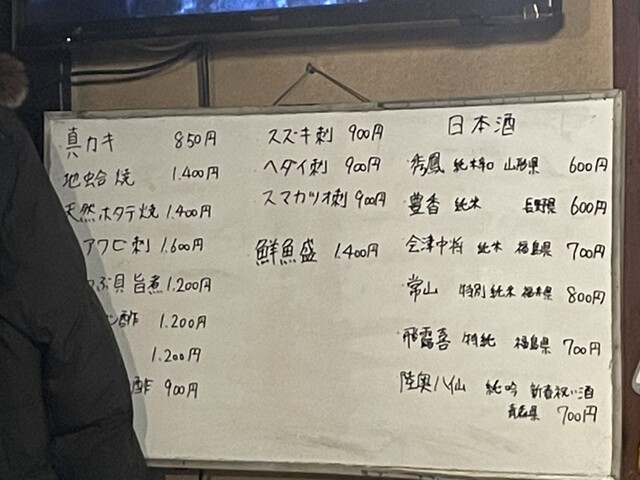 真カキ 850円
地蛤焼 1.400円
天然ホタテ焼 1.400円
アワビ刺 1.600円
つぶ貝旨煮 1.200円
酢 1.200円
1.200円
酢 900円
スズキ刺 900円
ヘダイ刺 900円
スマカツオ刺 900円
鮮魚盛 1.400円
日本酒
秀鳳 純米吟 山形県 600円
豊香 純米 長野県 600円
会津中将 純米 福島県 700円
常山 特別純米 福井県 800円
飛露喜 特純 福島県 700円
陸奥八仙 純吟 新春祝い酒
青森県 700円